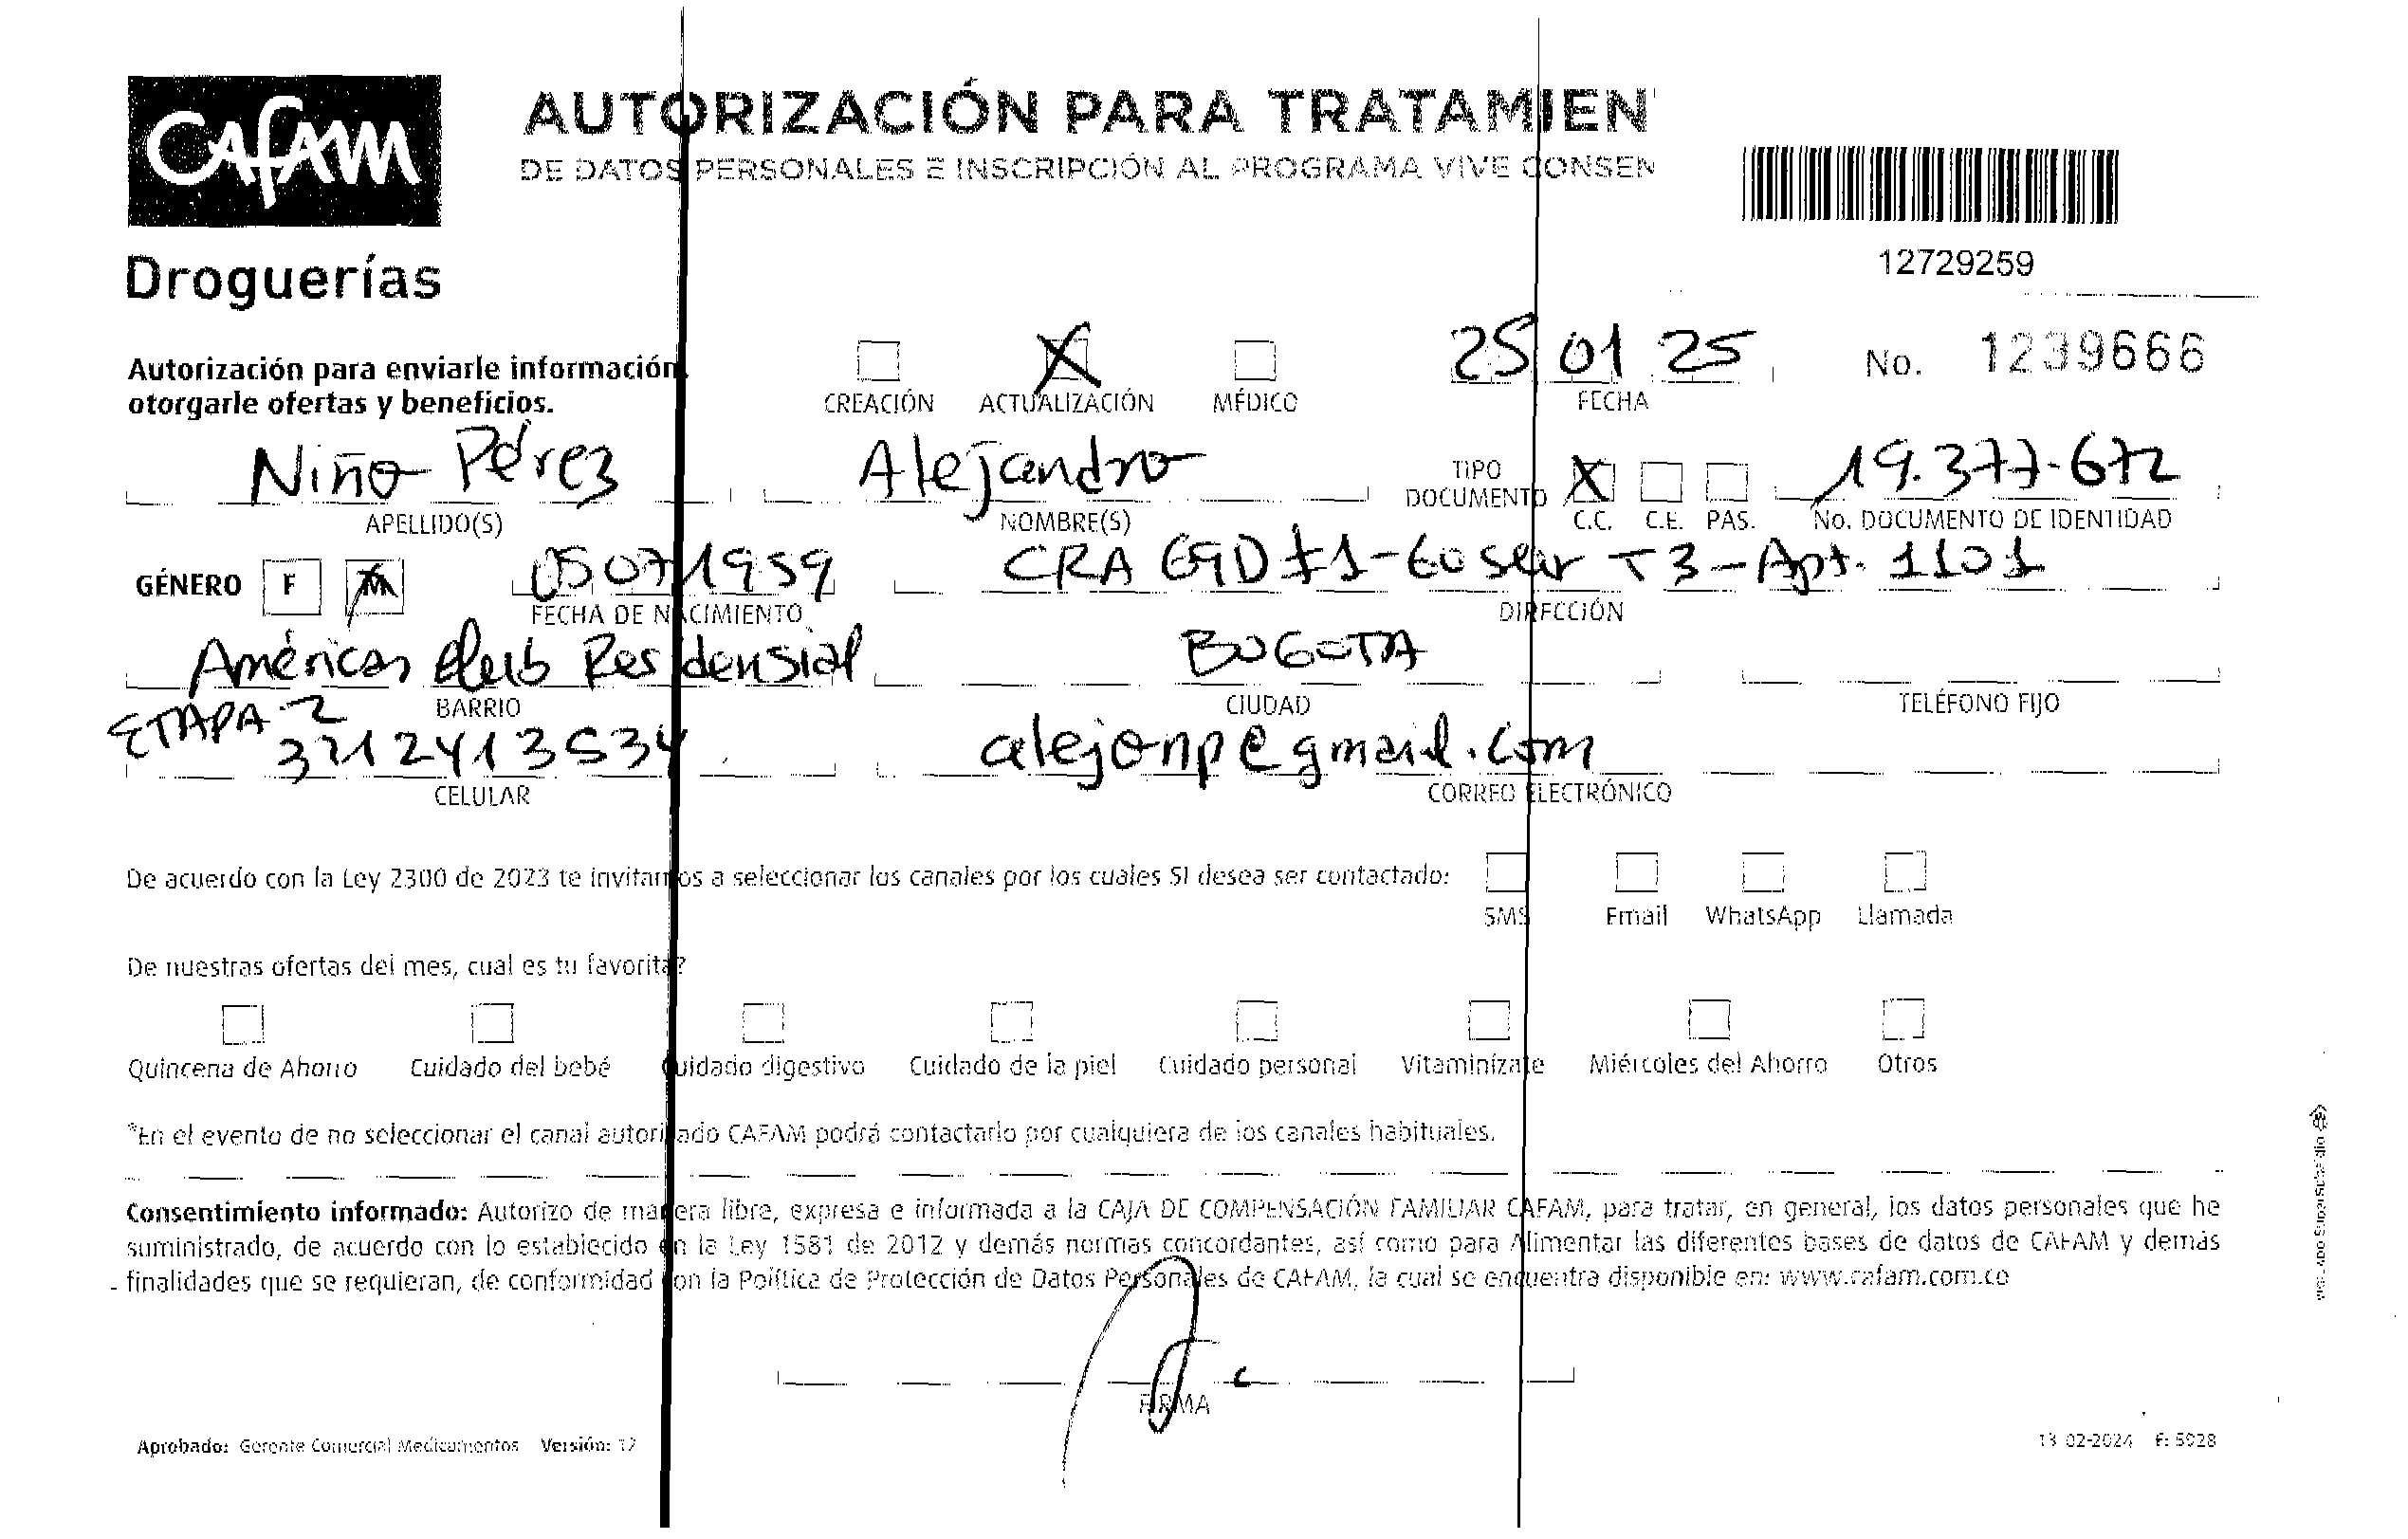 Cafam
Droguerías
AUTORIZACIÓN PARA TRATAMIEN
DE DATOS PERSONALES E INSCRIPCIÓN AL PROGRAMA VIVE CONSEN
12729259
Autorización para enviarle información
otorgarle ofertas y beneficios.
CREACIÓN ACTUALIZACIÓN MÉDICO
25 01 25
FECHA
No. 1239666
Niño Pérez Alejandro
TIPO DOCUMENTO X 19.377.672
APELLIDO(S) NOMBRE(S) C.C. C.E. PAS. No. DOCUMENTO DE IDENTIDAD
GÉNERO F M 05071959 CRA 69D #1-60 sur T3-Apt. 1101
FECHA DE NACIMIENTO DIRECCIÓN
Américas Club Residensial BOGOTA
BARRIO CIUDAD TELÉFONO FIJO
ETAPA 2
alejonp@gmail.com
CELULAR CORREO ELECTRÓNICO
De acuerdo con la Ley 2300 de 2023 te invitamos a seleccionar los canales por los cuales SI desea ser contactado:
SMS Email WhatsApp Llamada
De nuestras ofertas del mes, cual es tu favorita?
Quincena de Ahorro Cuidado del bebé Cuidado digestivo Cuidado de la piel Cuidado personal Vitaminízate Miércoles del Ahorro Otros
*En el evento de no seleccionar el canal autorizado CAFAM podrá contactarlo por cualquiera de los canales habituales.
Consentimiento informado: Autorizo de manera libre, expresa e informada a la CAJA DE COMPENSACIÓN FAMILIAR CAFAM, para tratar, en general, los datos personales que he
suministrado, de acuerdo con lo establecido en la Ley 1581 de 2012 y demás normas concordantes, así como para Alimentar las diferentes bases de datos de CAFAM y demás
finalidades que se requieran, de conformidad con la Política de Protección de Datos Personales de CAFAM, la cual se encuentra disponible en: www.cafam.com.co
FIRMA
Aprobado: Gerente Comercial Medicamentos Versión: 12
13-02-2024 F: 5928